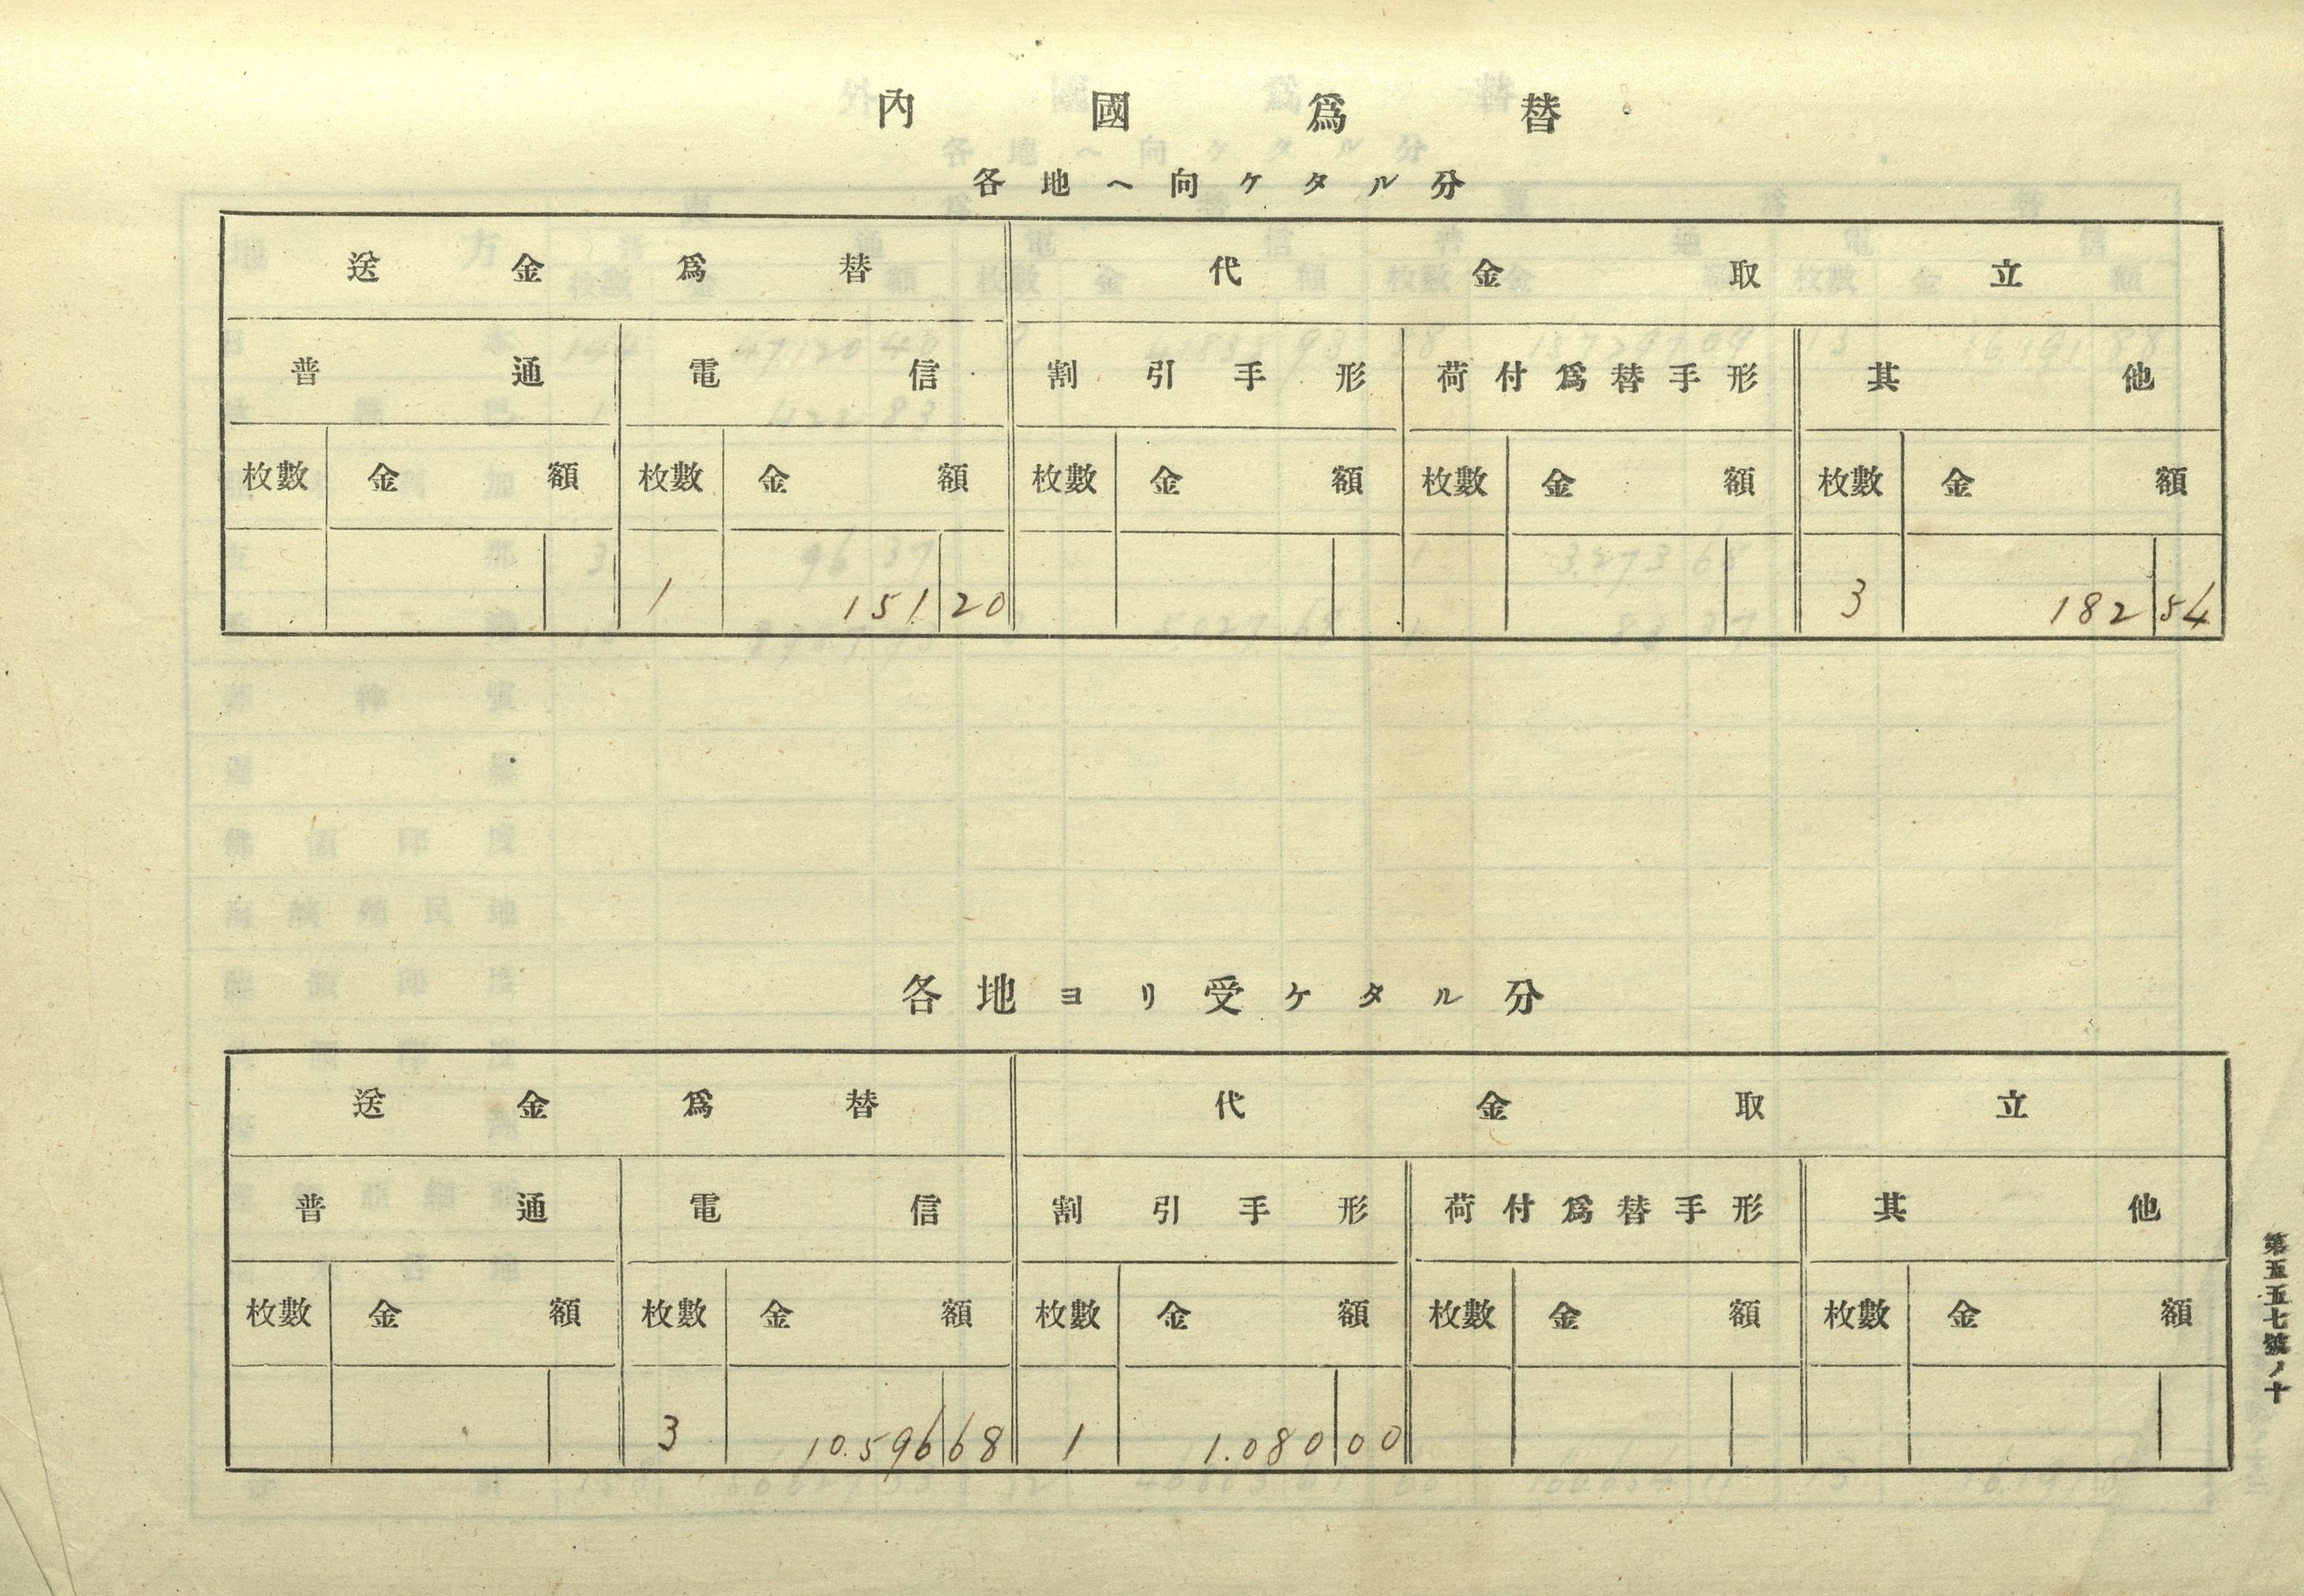 內國爲替
各地ヘ向ケタル分
送金爲替 代金取立
普通 電信 割引手形 荷付爲替手形 其他
枚數 金額 枚數 金額 枚數 金額 枚數 金額 枚數 金額
1 151 20 3 182 54
各地ヨリ受ケタル分
送金爲替 代金取立
普通 電信 割引手形 荷付爲替手形 其他
枚數 金額 枚數 金額 枚數 金額 枚數 金額 枚數 金額
3 10.596 68 1 1.080 00
第五五七號ノ十